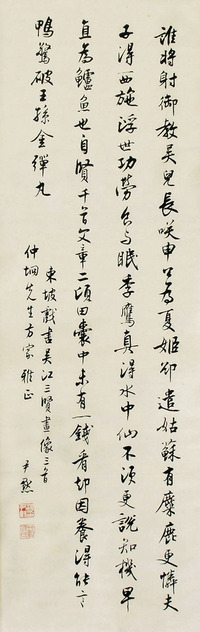 誰將射御教吳兒長咲申公為夏姬卻遣姑蘇有麋鹿更憐夫
子得西施浮世功勞食与眠季鷹真得水中仙不須更說知機早
直為鱸魚也自賢千首文章二頃田囊中未有一錢看卻因養得能言
鴨驚破王孫金彈丸
東坡戲書吳江三賢畫像三首
仲堈先生方家雅正
尹默